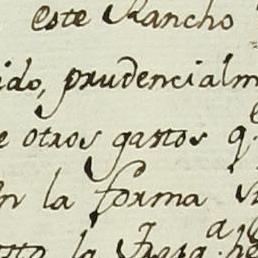 este Rancho
ido, prudencialm
e otros gastos q.
en la forma
la